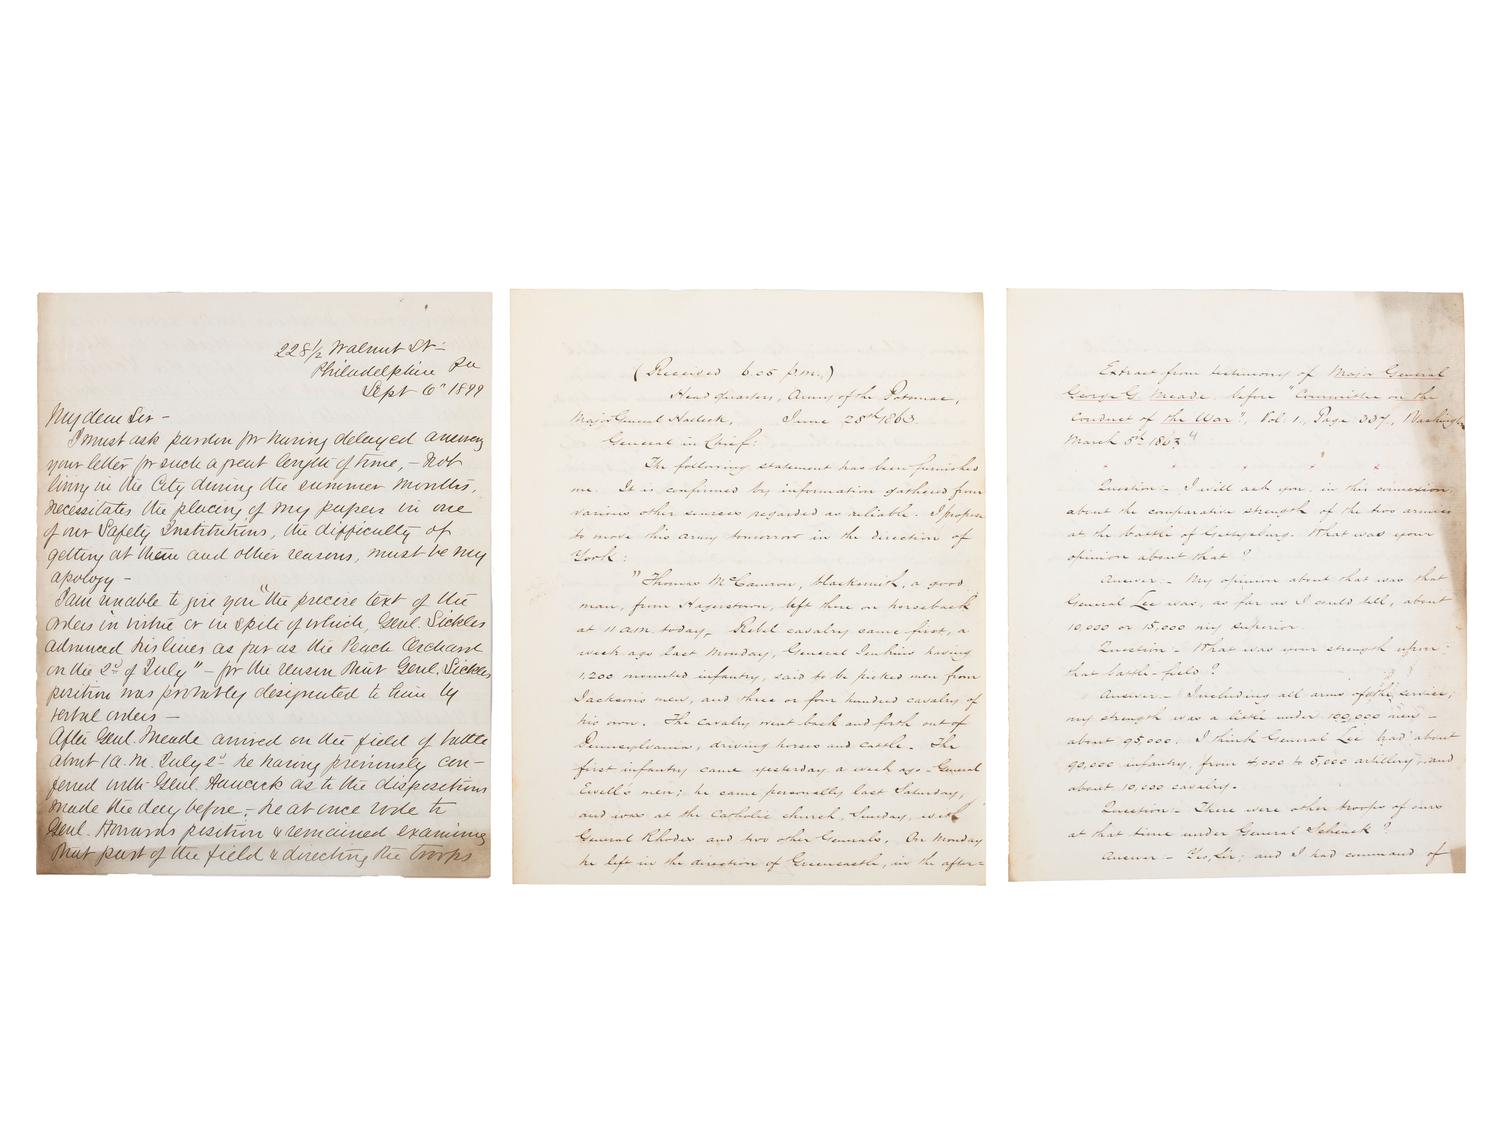 228½ Walnut St –
Philadelphia Pa
Sept 6" 1899
My dear Sir –
I must ask pardon for having delayed answering
your letter for such a great length of time, – Not
living in the City during the summer months,
necessitates the placing of my papers in one
of our Safety Institutions, the difficulty of
getting at them and other reasons, must be my
apology –
I am unable to give you "the precise text of the
orders in virtue or in spite of which, Genl. Sickles
advanced his lines as far as the Peach Orchard
on the 2d of July" – for the reason that Genl. Sickles
position was probably designated to him by
verbal orders –
After Genl. Meade arrived on the field of battle
about 1 A.M. July 2d he having previously con-
ferred with Genl. Hancock as to the dispositions
made the day before, – he at once rode to
Genl. Howards position & remained examining
that part of the field & directing the troops
(Received 6.05 p.m.)
Headquarters, Army of the Potomac,
Major General Halleck, June 28th 1863.
General in Chief:
The following statement has been furnished
me. It is confirmed by information gathered from
various other sources regarded as reliable. I propose
to move this army tomorrow in the direction of
York:
"Thomas McCamron, blacksmith, a good
man, from Hagerstown, left there on horseback
at 11 am. today, Rebel cavalry came first, a
week ago last Monday, General Jenkins having
1,200 mounted infantry, said to be picked men from
Jackson's men, and three or four hundred cavalry of
his own. The cavalry went back and forth out of
Pennsylvania, driving horses and cattle. The
first infantry came yesterday a week ago – General
Ewell's men; he came personally last Saturday,
and was at the Catholic church, Sunday, with
General Rhodes and two other Generals. On Monday
he left in the direction of Greencastle, in the after=
Extract from testimony of Major General
George G. Meade, before "Committee on the
Conduct of the War", Vol. 1., Page 337., Washington
March 5th 1863"
x x x x x
Question – I will ask you, in this connexion,
about the comparative strength of the two armies
at the battle of Gettysburg. What was your
opinion about that?
Answer – My opinion about that was that
General Lee was, as far as I could tell, about
10,000 or 15,000 my superior.
Question – What was your strength upon
that battle-field?
Answer – Including all arms of the service;
my strength was a little under 100,000 men –
about 95,000. I think General Lee had about
90,000 infantry, from 4,000 to 5,000 artillery, and
about 10,000 cavalry.
Question – There were other troops of ours
at that time under General Schenck?
Answer – Yes, Sir; and I had command of